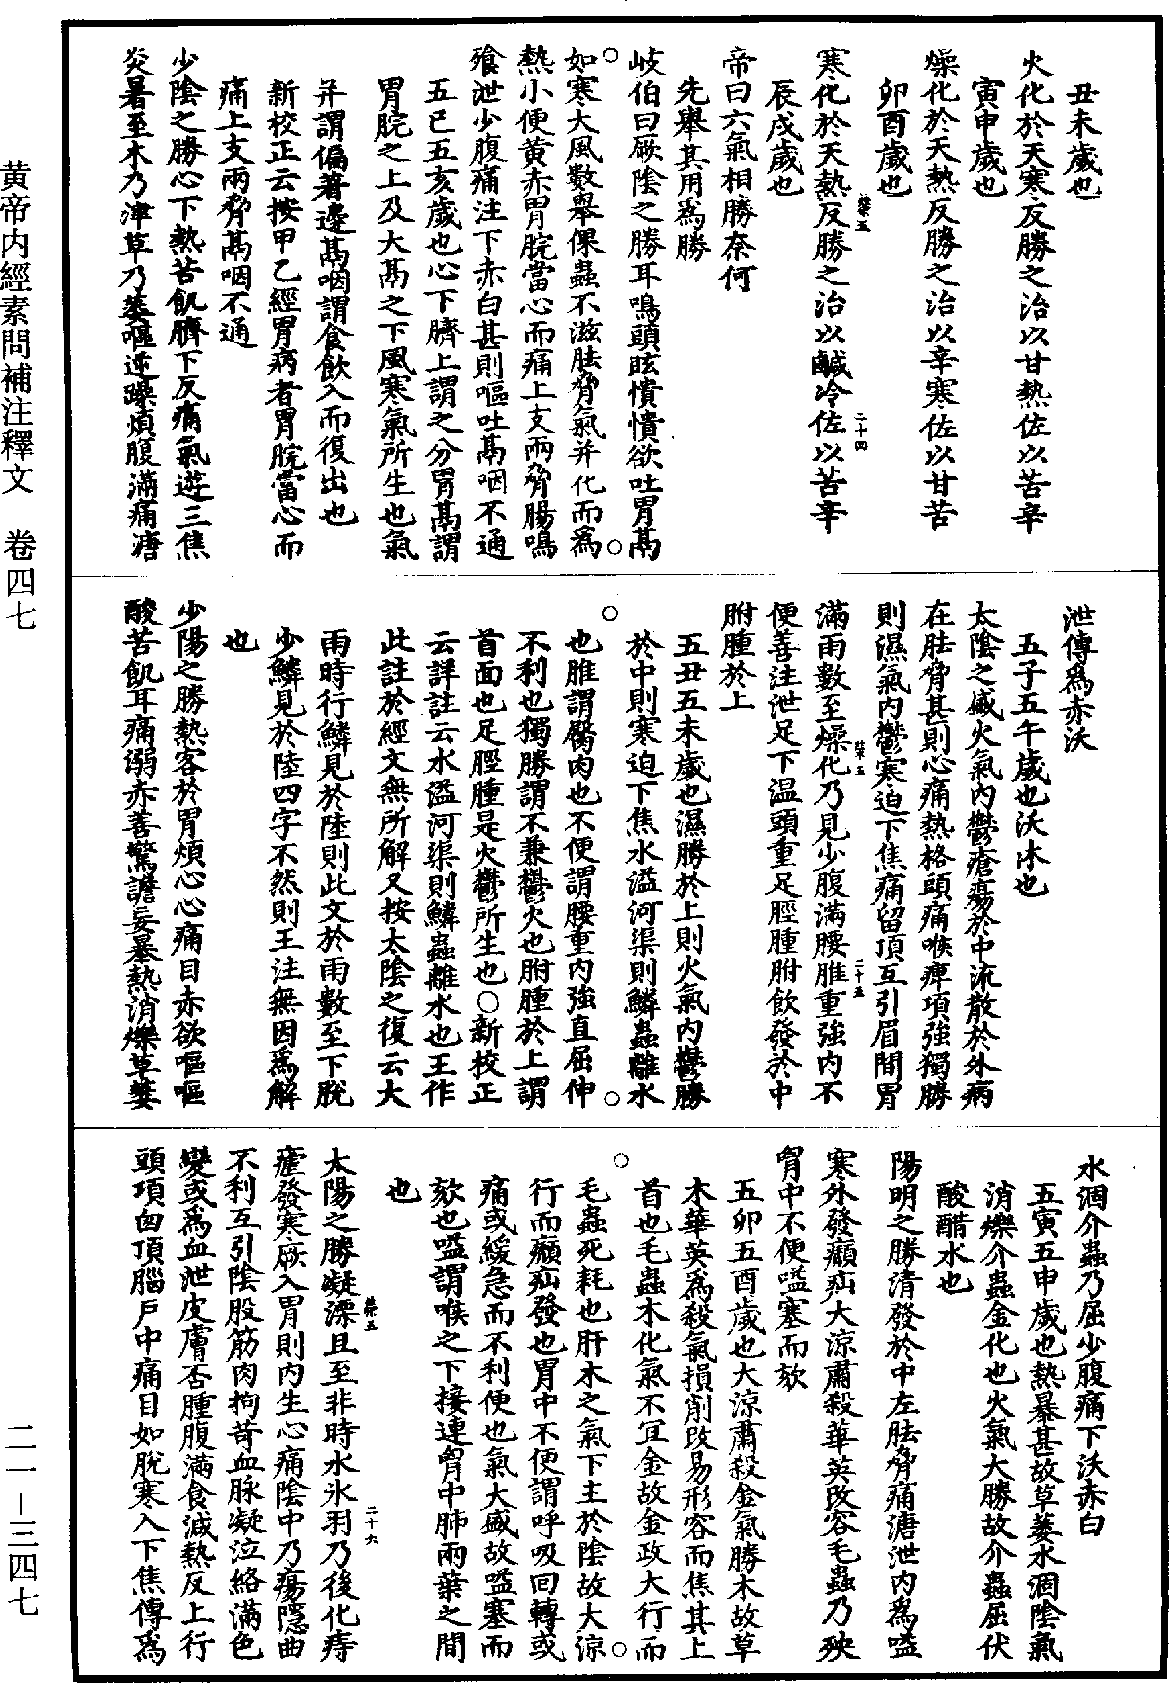 丑未歲也
火化於天寒反勝之治以甘熱佐以苦辛
寅申歲也
燥化於天熱反勝之治以辛寒佐以甘苦
卯酉歲也
寒化於天熱反勝之治以鹹冷佐以苦辛
辰戌歲也
帝曰六氣相勝奈何
先舉其用爲勝
岐伯曰厥陰之勝耳鳴頭眩憒憒欲吐胃鬲
如寒大風數舉倮蟲不滋胠脅氣并化而爲
熱小便黃赤胃脘當心而痛上支兩脅腸鳴
飱泄少腹痛注下赤白甚則嘔吐鬲咽不通
五巳五亥歲也心下臍上謂之分胃鬲謂
胃脘之上及大鬲之下風寒氣所生也氣
并謂偏著邊鬲咽謂食飲入而復出也
新校正云按甲乙經胃病者胃脘當心而
痛上支兩脅鬲咽不通
少陰之勝心下熱苦飢臍下反痛氣遊三焦
炎暑至木乃津草乃萎嘔逆躁煩腹滿痛溏
泄傳爲赤沃
五子五午歲也沃沐也
太陰之盛火氣內鬱瘡瘍於中流散於外病
在胠脅甚則心痛熱格頭痛喉痺項強獨勝
則濕氣內鬱寒迫下焦痛留頂互引眉間胃
滿雨數至燥化乃見少腹滿腰脽重強內不
便善注泄足下温頭重足脛腫胕飲發於中
胕腫於上
五丑五未歲也濕勝於上則火氣內鬱勝
於中則寒迫下焦水溢河渠則鱗蟲離水
也脽謂臀肉也不便謂腰重內強直屈伸
不利也獨勝謂不兼鬱火也胕腫於上謂
首面也足脛腫是火鬱所生也○新校正
云詳註云水溢河渠則鱗蟲離水也王作
此註於經文無所解又按太陰之復云大
雨時行鱗見於陸則此文於雨數至下脫
少鱗見於陸四字不然則王注無因爲解
也
少陽之勝熱客於胃煩心心痛目赤欲嘔嘔
酸苦飢耳痛溺赤善驚譫妄暴熱消爍草萎
水涸介蟲乃屈少腹痛下沃赤白
五寅五申歲也熱暴甚故草萎水涸陰氣
消爍介蟲金化也火氣大勝故介蟲屈伏
酸醋水也
陽明之勝清發於中左胠脅痛溏泄內爲嗌
寒外發癲疝大凉肅殺華英改容毛蟲乃殃
胷中不便嗌塞而欬
五卯五酉歲也大凉肅殺金氣勝木故草
木華英爲殺氣損削改易形容而焦其上
首也毛蟲木化氣不宜金故金政大行而
毛蟲死耗也肝木之氣下主於陰故大凉
行而癲疝發也胃中不便謂呼吸回轉或
痛或緩急而不利便也氣大盛故嗌塞而
欬也嗌謂喉之下接連胷中肺兩葉之間
也
太陽之勝凝凓且至非時水氷羽乃後化痔
瘧發寒厥入胃則內生心痛陰中乃瘍隱曲
不利互引陰股筋肉拘苛血脉凝泣絡滿色
變或爲血泄皮膚否腫腹滿食減熱反上行
頭項囟頂腦戸中痛目如脫寒入下焦傳爲
黃帝內經素問補注釋文　卷四七
二一—三四七
二十四
二十五
二十六